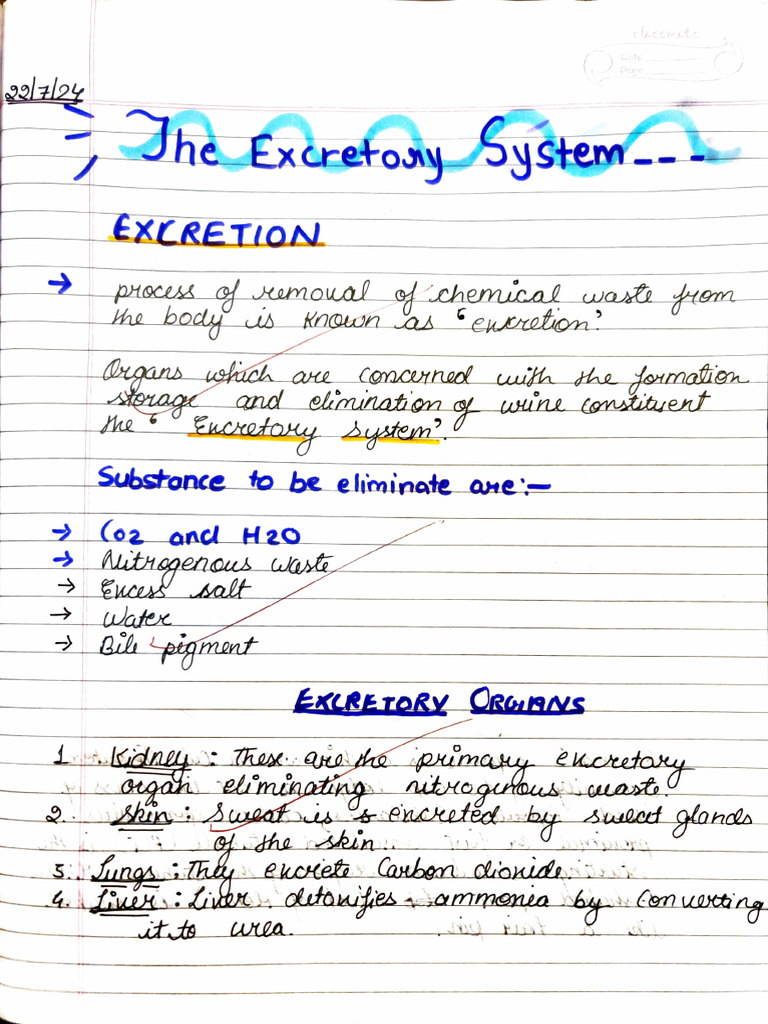 classmate
Date
Page
22/7/24
The Excretory System---
EXCRETION
→ process of removal of chemical waste from
the body is known as 'excretion'.
Organs which are concerned with the formation
storage and elimination of urine constituent
the 'Excretory System'.
Substance to be eliminate are:-
→ CO2 and H2O
→ Nitrogenous waste
→ Excess salt
→ Water
→ Bile pigment
EXCRETORY ORGANS
1 Kidney : These are the primary excretory
organ eliminating nitrogenous waste.
2. Skin : Sweat is excreted by sweat glands
of the skin
3. Lungs : They excrete Carbon dioxide
4. Liver : Liver detoxifies ammonea by converting
it to urea.